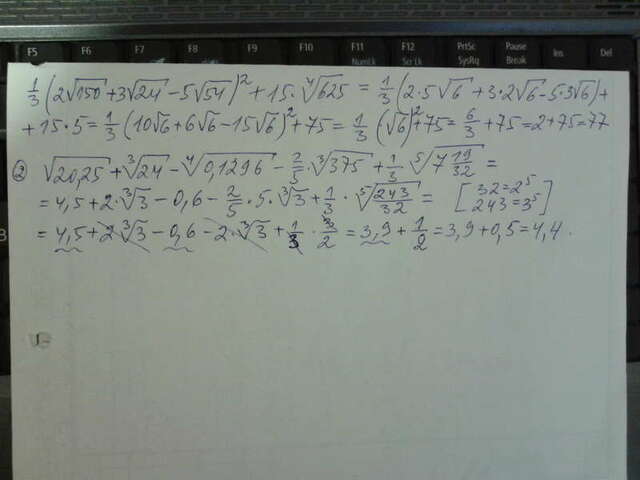 F5 F6 F7 F8 F9 F10 F11 F12 PrtSc Pause Ins Del
Numlk Scrlk SysRq Break
1/3 (2√150 + 3√24 - 5√54)² + 15 · ⁴√625 = 1/3 (2·5√6 + 3·2√6 - 5·3√6) +
+ 15·5 = 1/3 (10√6 + 6√6 - 15√6)² + 75 = 1/3 (√6)² + 75 = 6/3 + 75 = 2 + 75 = 77
② √20,25 + ³√24 - ⁴√0,1296 - 2/5 · ³√375 + 1/3 · ⁵√(7 19/32) =
= 4,5 + 2·³√3 - 0,6 - 2/5 · 5 · ³√3 + 1/3 · ⁵√(243/32) = [32 = 2⁵
243 = 3⁵]
= 4,5 + 2³√3 - 0,6 - 2·³√3 + 1/3 · 3/2 = 3,9 + 1/2 = 3,9 + 0,5 = 4,4.